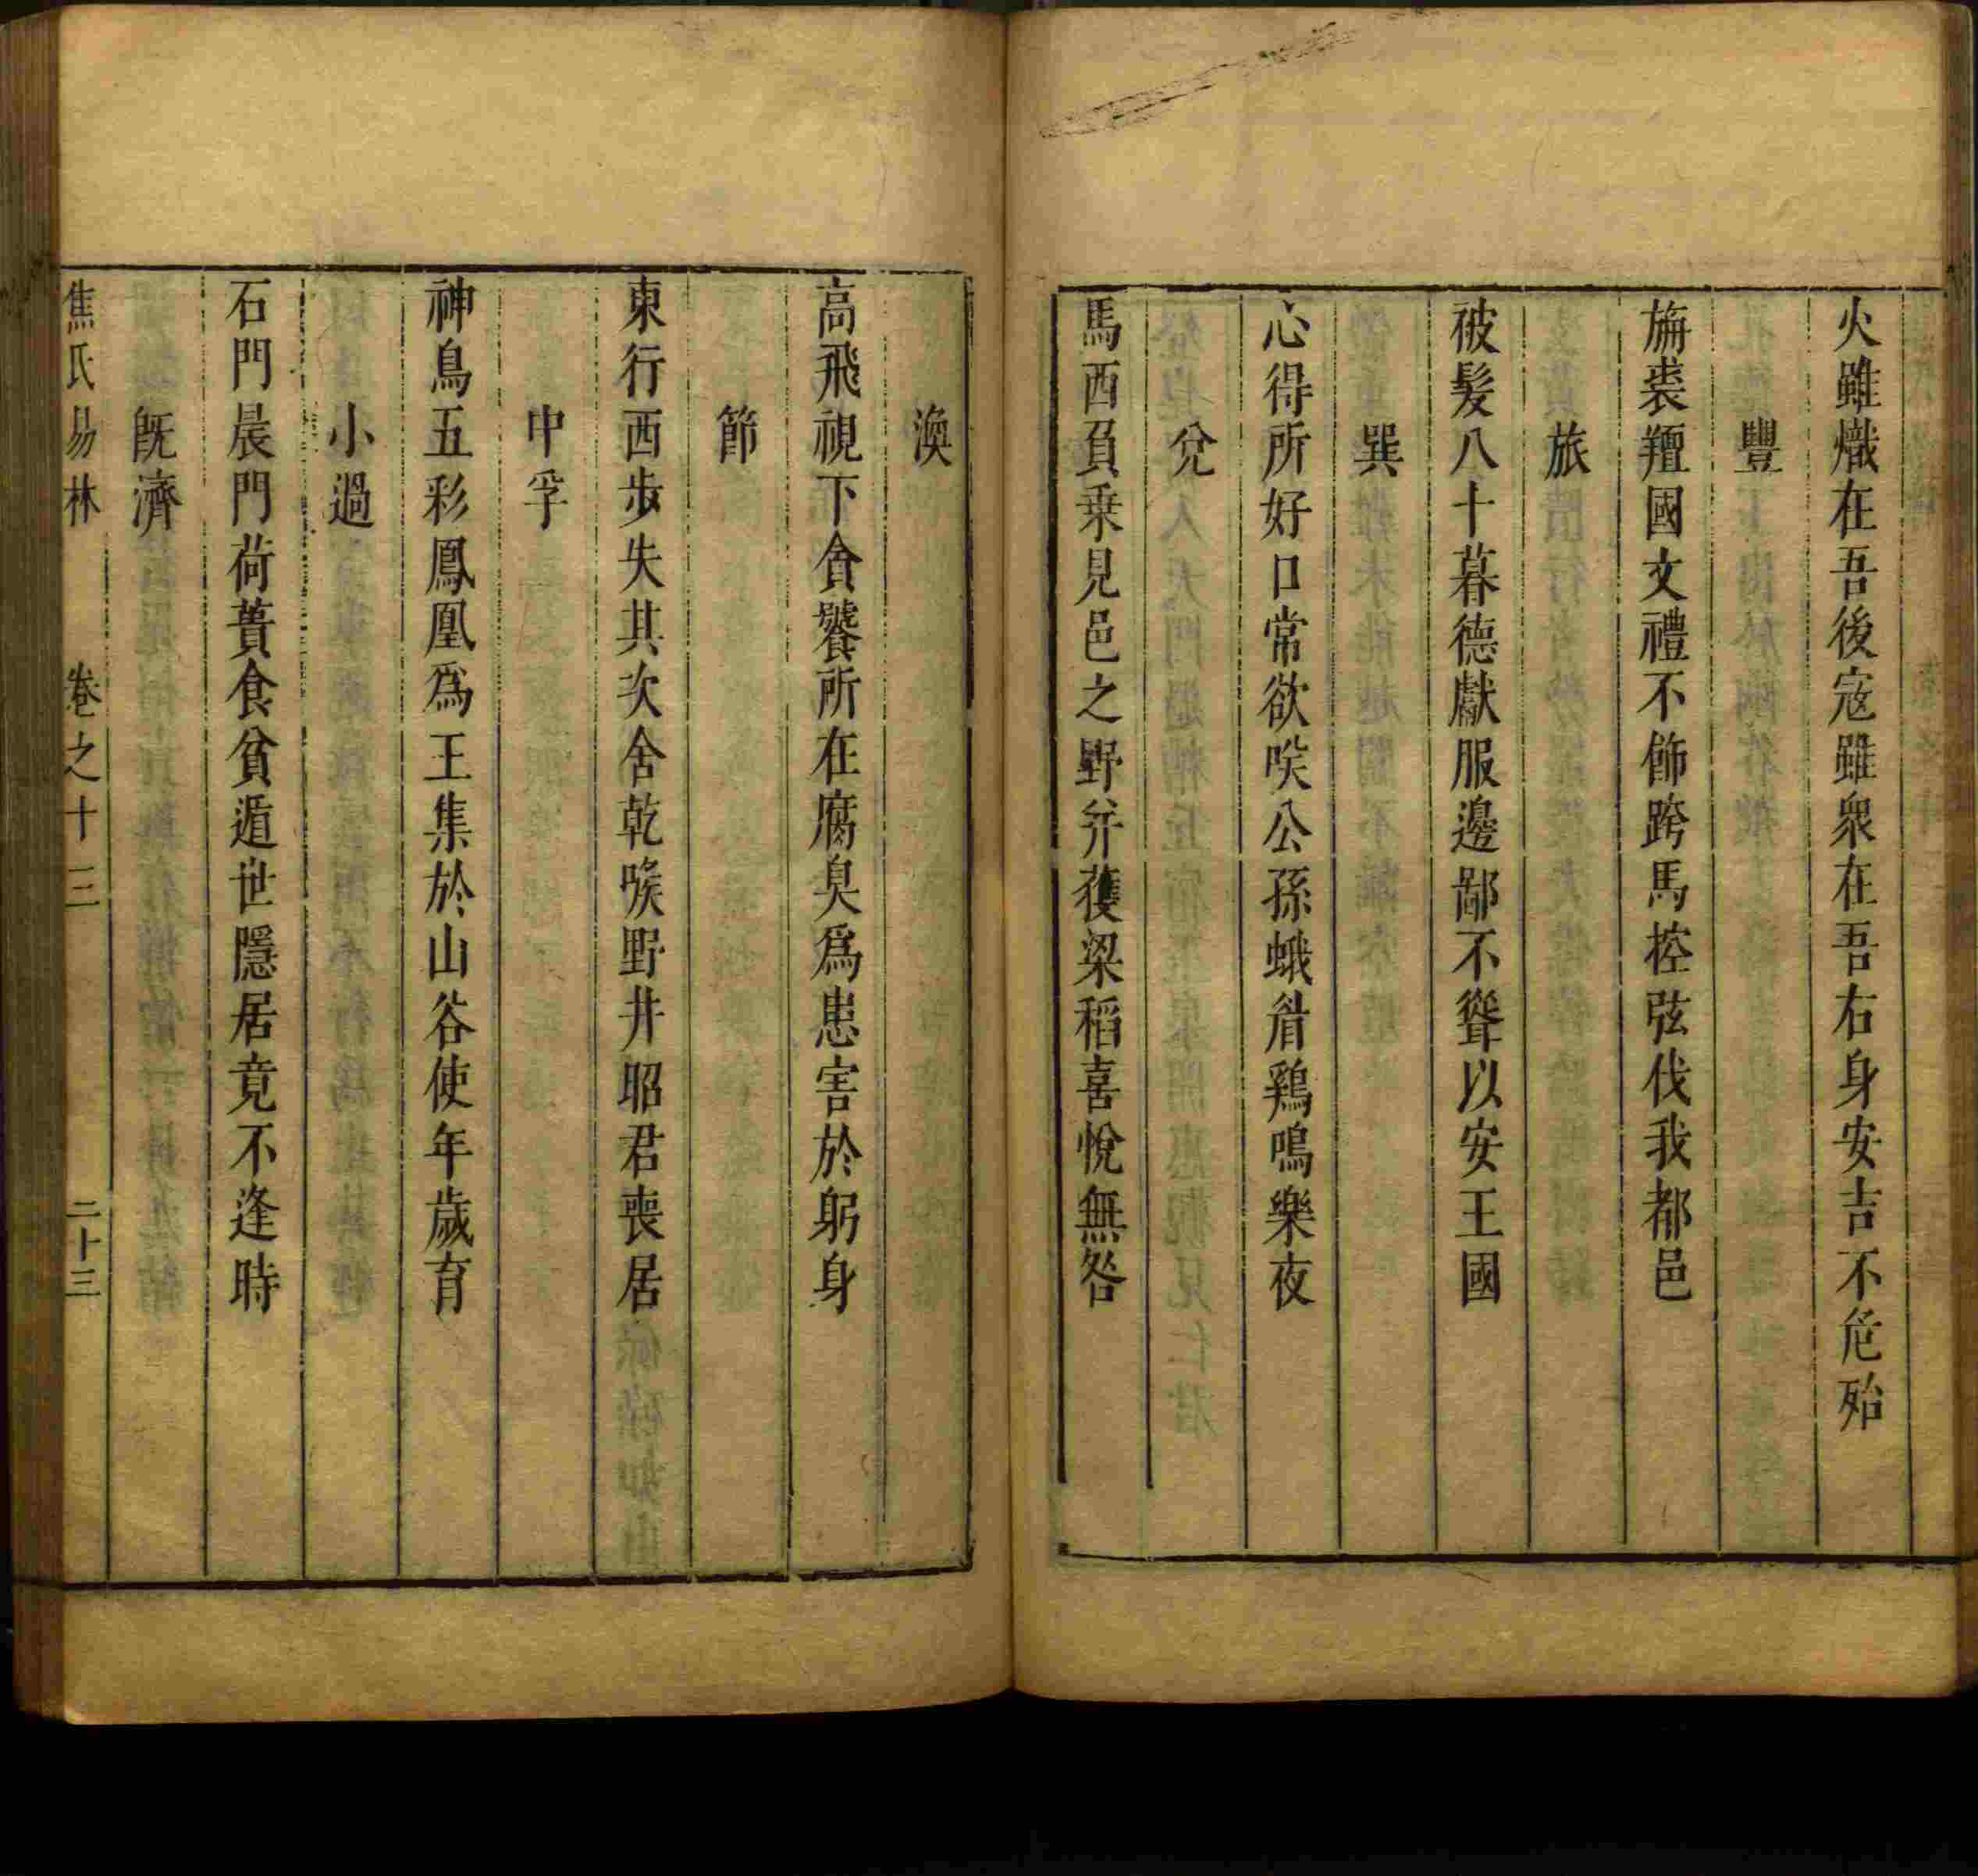 火雖熾在吾後寇雖衆在吾右身安吉不危殆
豐
旃裘羶國文禮不飾跨馬控弦伐我都邑
旅
被髮八十暮德獻服邊鄙不聳以安王國
巽
心得所好口常欲唉公孫蛾眉鶏鳴樂夜
兊
馬西負乗見邑之野并獲梁稻喜悅無咎
渙
高飛視下貪饕所在腐臭爲患害於躬身
節
東行西步失其次舍乾喉野井昭君喪居
中孚
神鳥五彩鳳凰爲王集於山谷使年歲育
小過
石門晨門荷蕢食貧遁世隱居竟不逢時
旣濟
焦氏易林 卷之十三 二十三